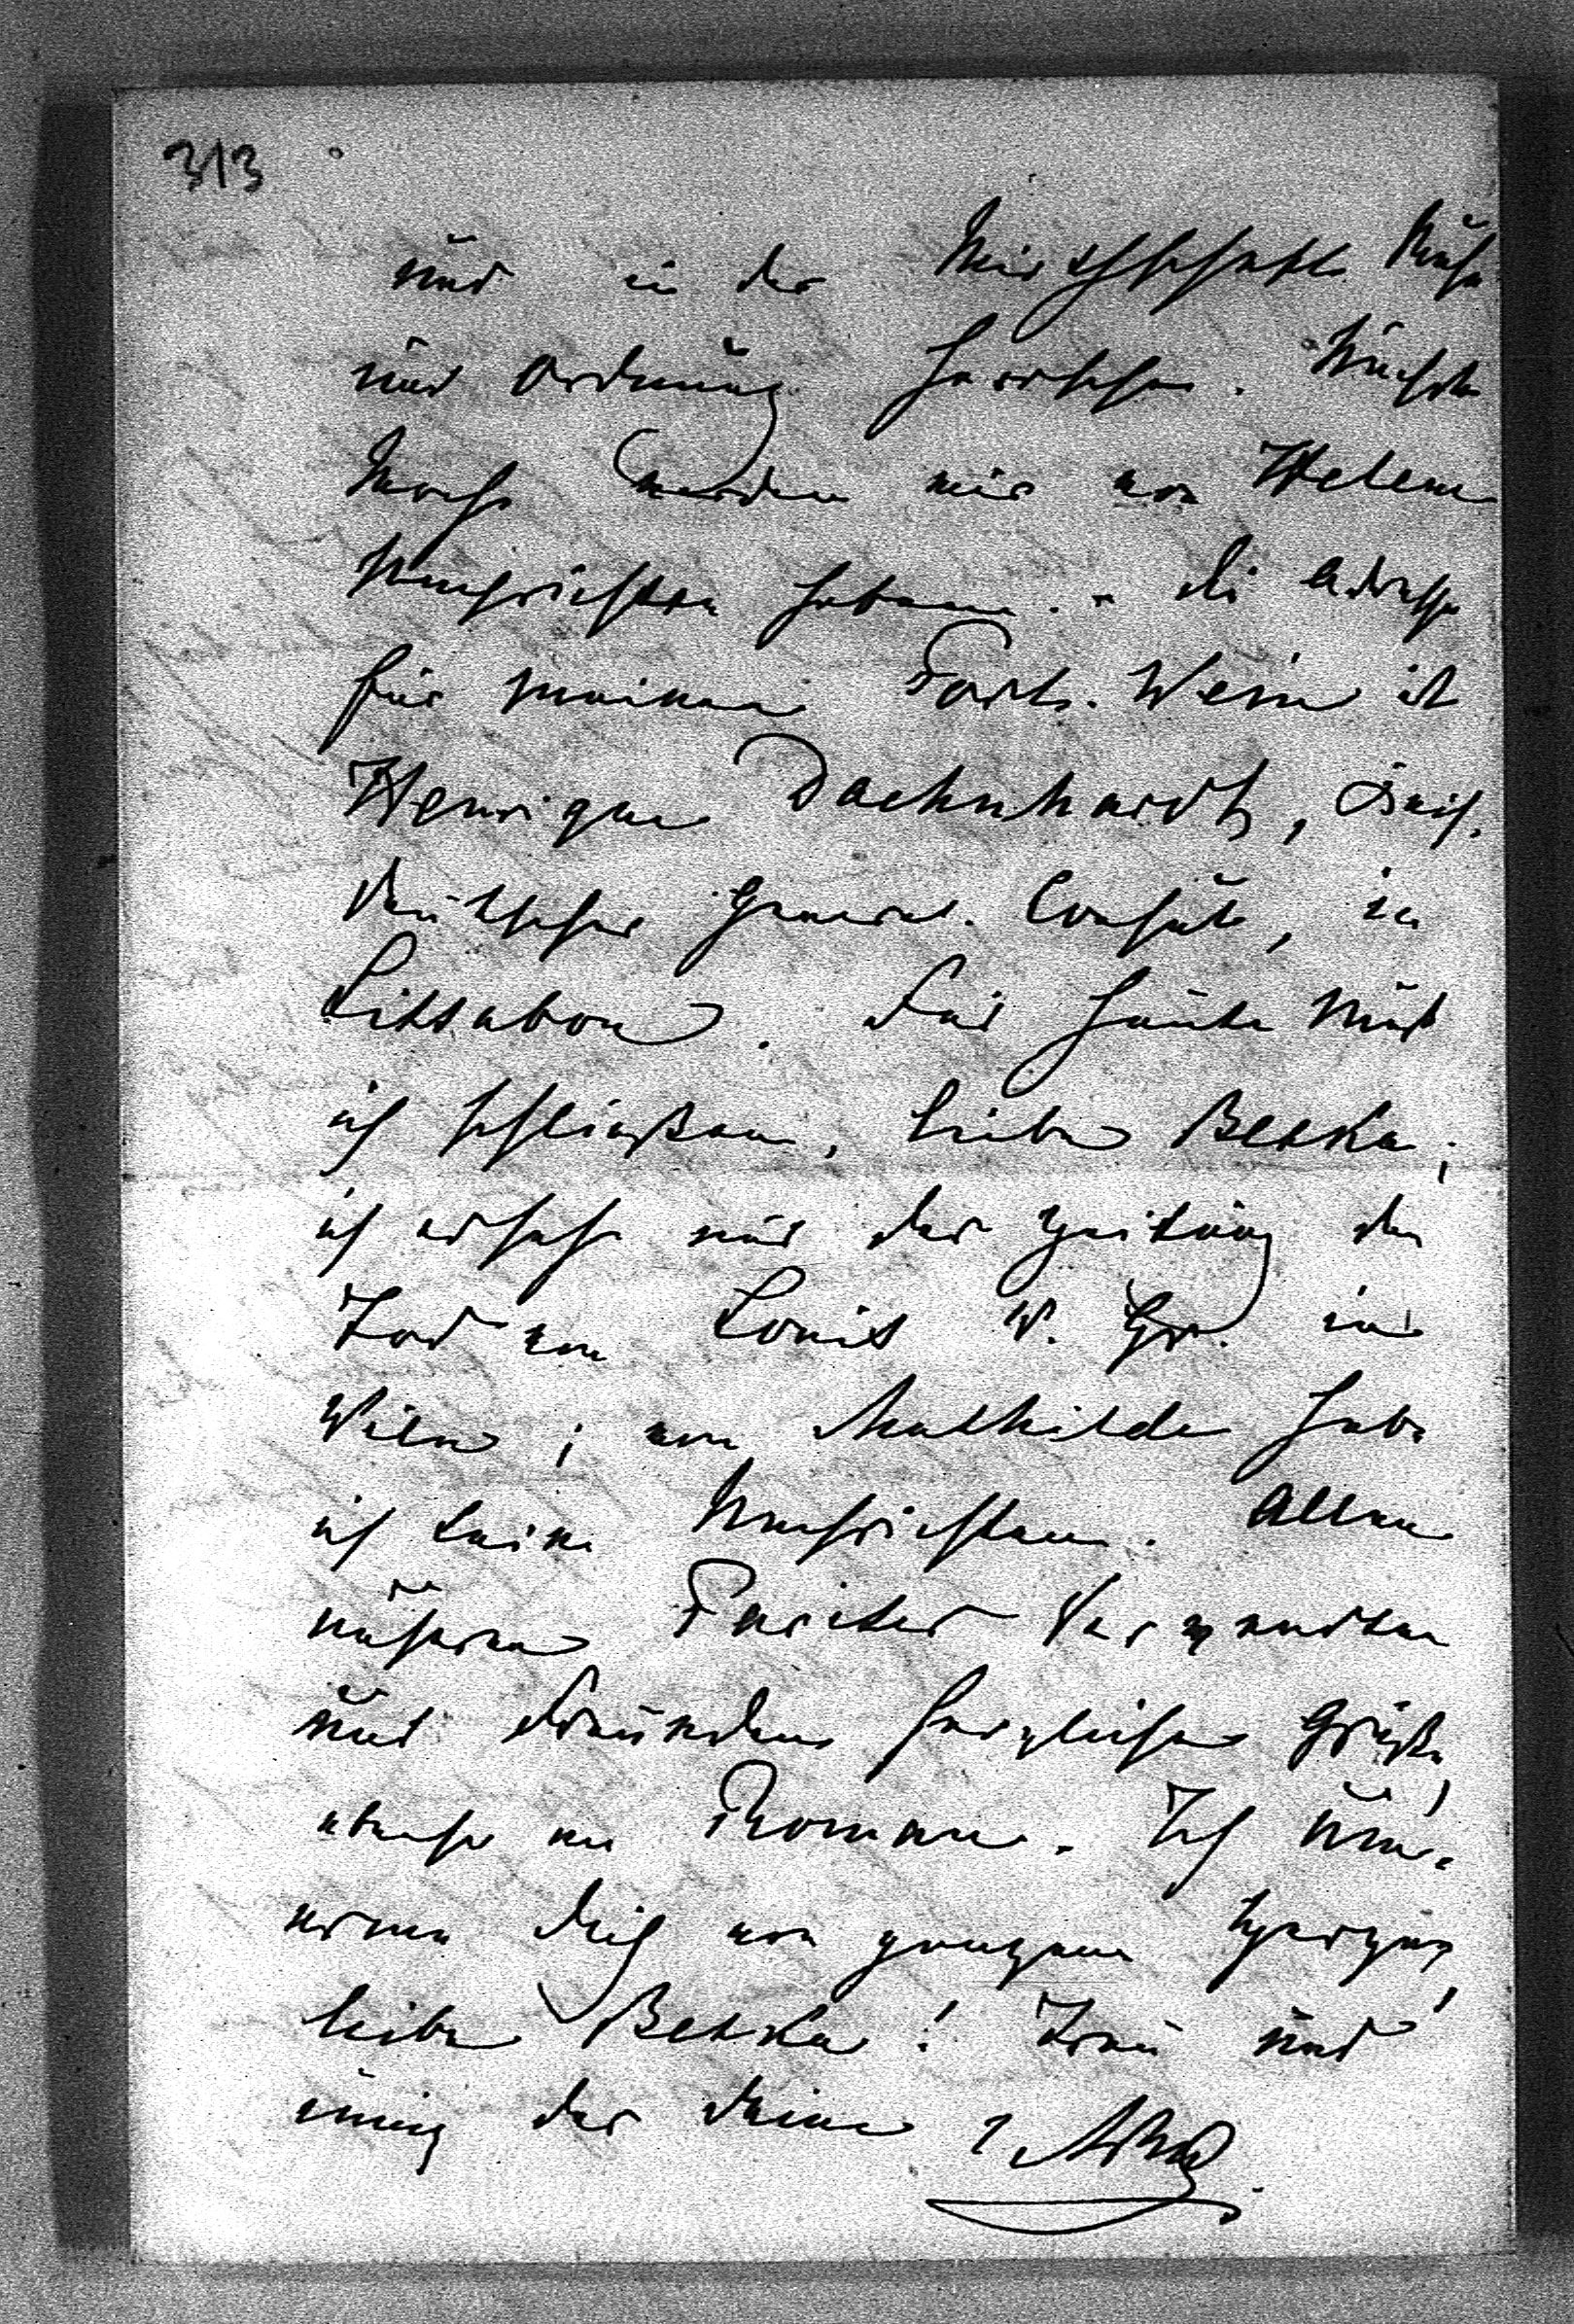 313
und in der Wirthschaft Ruhe
und Ordnung herrschen. Nächste
Woche werden wir von Helene
Nachrichten haben. - Die Adresse
für meinen Portw. Wein ist
Henrique Daehnhardt, Kais.
deutscher General-Consul, in
Lissabon. Für heute muß
ich schließen, liebe Betka;
ich ersehe aus der Zeitung den
Tod von Louis v. Gr. in
Wien; von Mathilde habe
ich keine Nachrichten. Allen
näheren Pariser Verwandten
und Freunden herzliche Grüße,
ebenso an Romane. Ich um-
arme Dich von ganzem Herzen,
liebe Betka! Treu und
innig der Deine